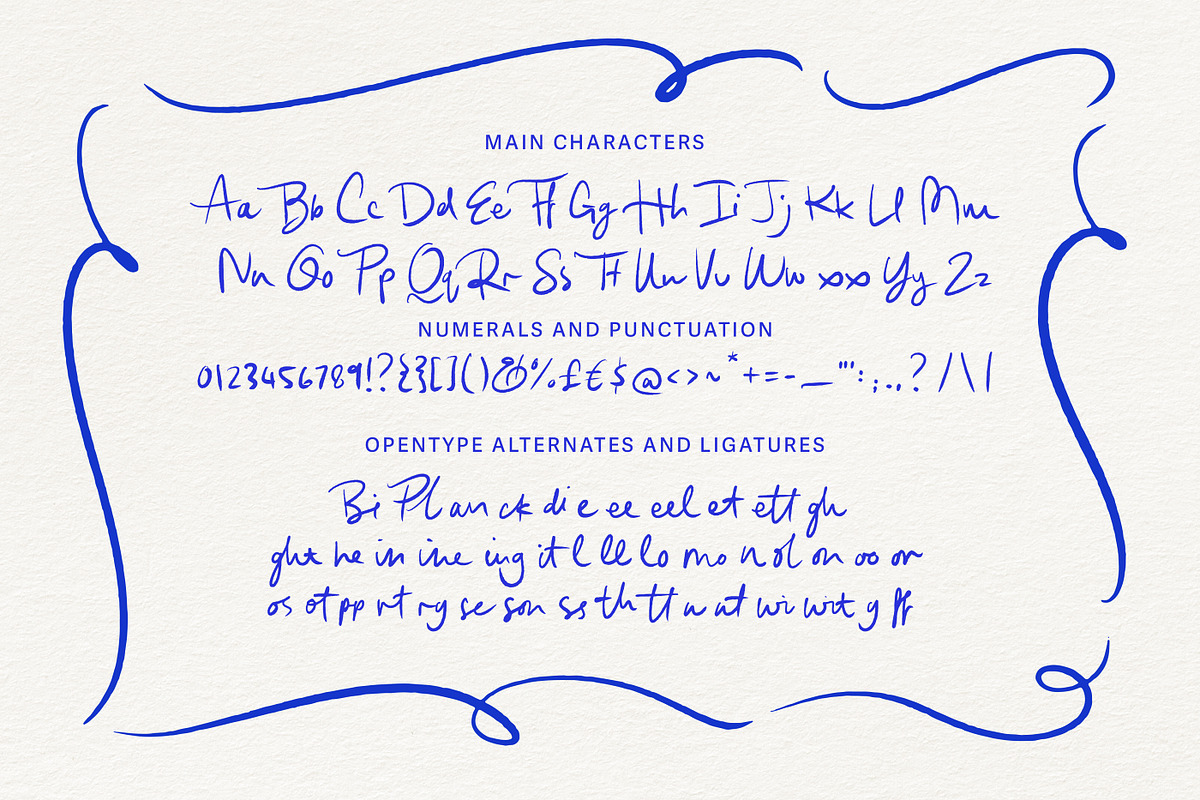 MAIN CHARACTERS
Aa Bb Cc Dd Ee Ff Gg Hh Ii Jj Kk Ll Mm
Nn Oo Pp Qq Rr Ss Tt Uu Vv Ww xx Yy Zz
NUMERALS AND PUNCTUATION
0123456789!?{}[]()&%.£€$@<>~*+=-_"':;.,?/\|
OPENTYPE ALTERNATES AND LIGATURES
Bi Pl an ck di e ee eel et ett gh
ght he in ine ing it l ll lo mo n ol on oo or
os ot pp rt ry se son ss th tt u ut wi wit y ff